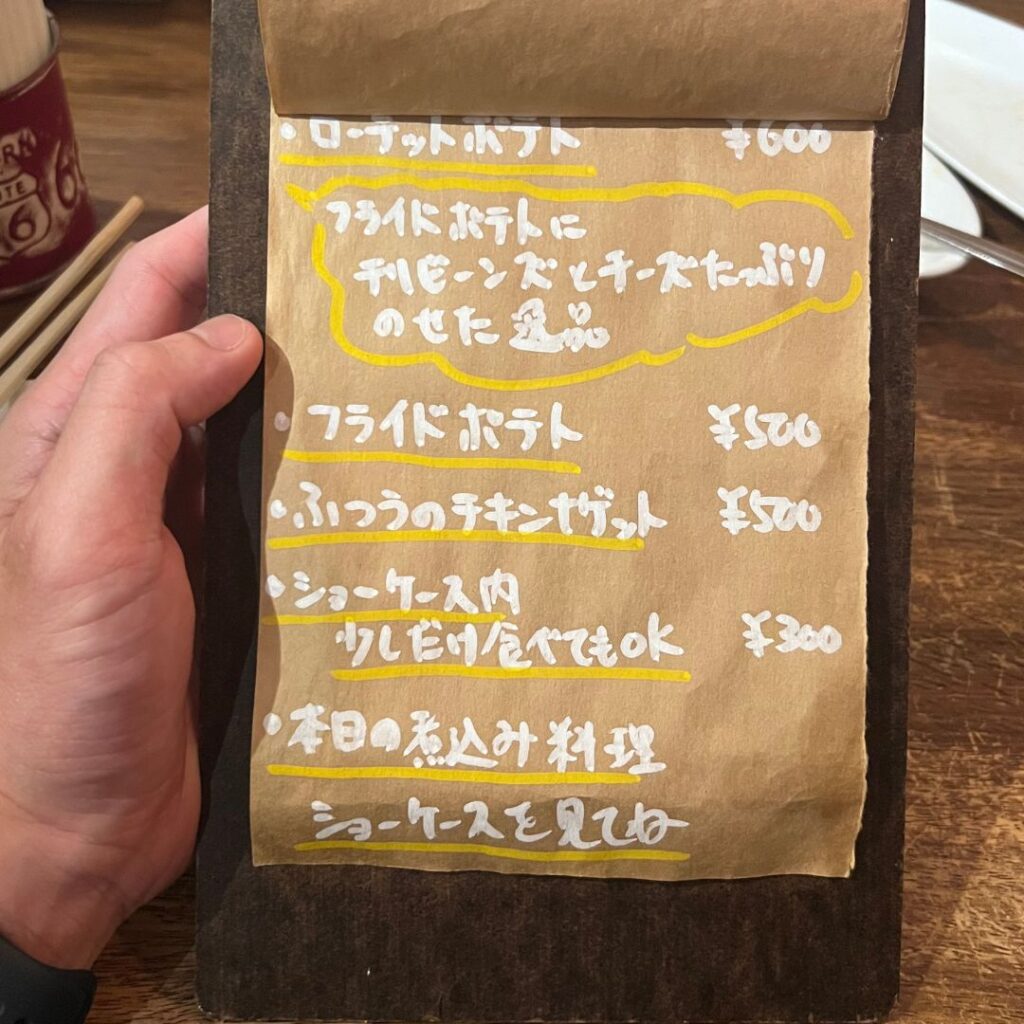 ・ローデットポテト ¥600
フライドポテトに
チリビーンズとチーズたっぷり
のせた逸品
・フライドポテト ¥500
・ふつうのチキンナゲット ¥500
・ショーケース内
少しだけ食べてもOK ¥300
・本日の煮込み料理
ショーケースを見てね
6